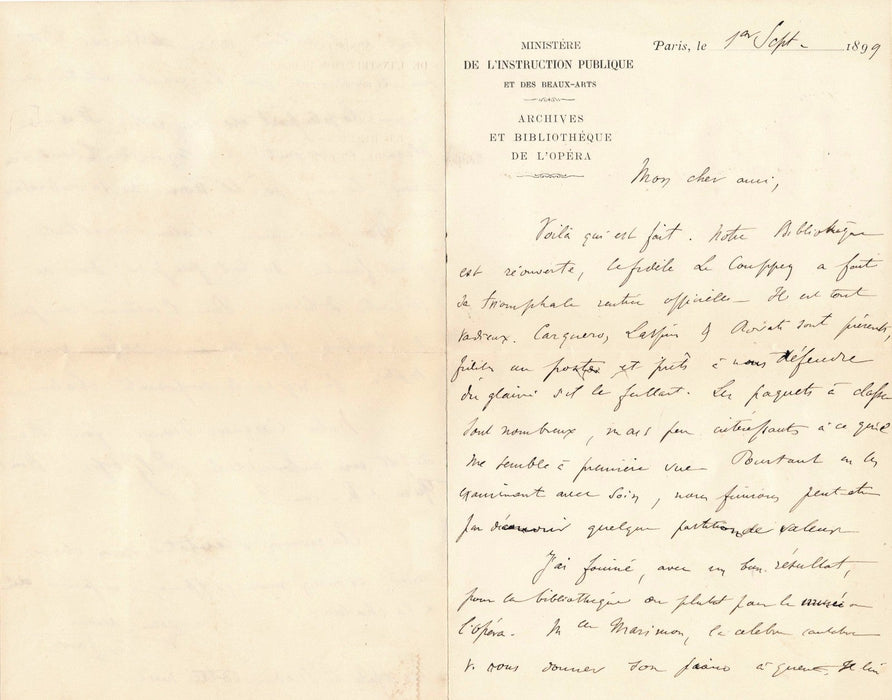 MINISTÈRE
DE L'INSTRUCTION PUBLIQUE
ET DES BEAUX-ARTS
ARCHIVES
ET BIBLIOTHÉQUE
DE L'OPÉRA
Paris, le 1er Sept. 1899
Mon cher ami,
Voilà qui est fait. Notre Bibliothèque
est réouverte, le fidèle Le Couppey a fait
sa triomphale rentrée officielle — Il est tout
radieux. sont présents,
au poste et prêts à nous défendre
du glaive s'il le fallait. Les paquets à classer
sont nombreux, mais peu intéressants à ce qu'il
me semble à première vue. Pourtant en les
examinant avec soin, nous finirons peut-être
par découvrir quelque partition de valeur
J'ai fouiné, avec un bon résultat,
pour la bibliothèque ou plutôt pour le musée
l'opéra. Melle Marimon, la célèbre cantatrice
v. nous donner son piano à queue. Il lui